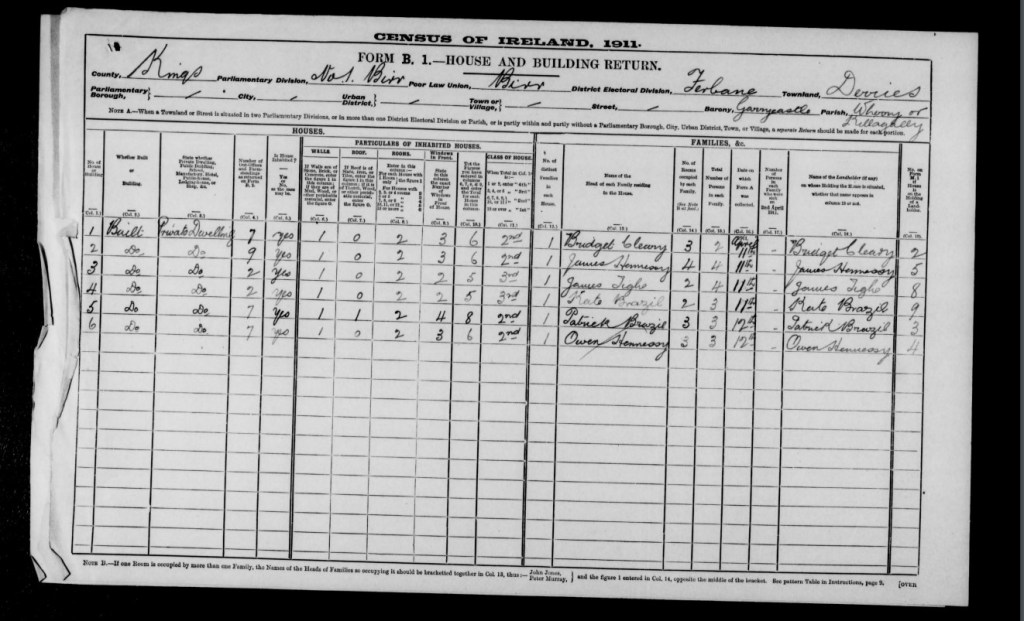 CENSUS OF IRELAND, 1911.
FORM B. 1.—HOUSE AND BUILDING RETURN.
County, Kings Parliamentary Division, No 1. Birr Poor Law Union, Birr District Electoral Division, Ferbane Townland, Derries
Parliamentary Borough, / City, / Urban District, / Town or Village, / Street, / Barony, Garrycastle Parish, Wheery or Killagally
NOTE A.—When a Townland or Street is situated in two Parliamentary Divisions, or in more than one District Electoral Division or Parish, or is partly within and partly without a Parliamentary Borough, City, Urban District, Town, or Village, a separate Return should be made for each portion.
HOUSES. FAMILIES, &c.
PARTICULARS OF INHABITED HOUSES.
WALLS ROOF. ROOMS. Windows in Front. CLASS OF HOUSE.
No. of House or Building
Whether Built or Building.
State whether Private Dwelling, Public Building, School, Manufactory, Hotel, Public-house, Lodging-house, or Shop, &c.
In House Inhabited? Yes or No, as the case may be.
No. of distinct Families in each House.
Name of the Head of each Family residing in the House.
No. of Rooms occupied by each Family.
Total Number of Persons in each Family.
Date on which Form A was collected.
Name of the Landholder (if any) on whose Holding the House is situated, whether that name appears in column 15 or not.
1 Built Private Dwelling 7 Yes 1 0 2 3 6 2nd 1 Bridget Cleary 3 2 April 11th - Bridget Cleary 2
2 Do Do 9 Yes 1 0 2 3 6 2nd 1 James Hennessy 4 4 11th - James Hennessy 5
3 Do Do 2 Yes 1 0 2 2 5 3rd 1 James Tighe 2 4 11th - James Tighe 8
4 Do Do 2 Yes 1 0 2 2 5 3rd 1 Kate Brazil 2 3 11th - Kate Brazil 9
5 Do Do 7 Yes 1 1 2 4 8 2nd 1 Patrick Brazil 3 3 12th - Patrick Brazil 3
6 Do Do 7 Yes 1 0 2 3 6 2nd 1 Owen Hennessy 3 3 12th - Owen Hennessy 4
NOTE B.—If one Room is occupied by more than one Family, the Names of the Heads of Families so occupying it should be bracketted together in Col. 15, thus:— John Jones, Peter Murray, } and the figure 1 entered in Col. 16, opposite the middle of the bracket. See pattern Table in Instructions, page 9. [OVER